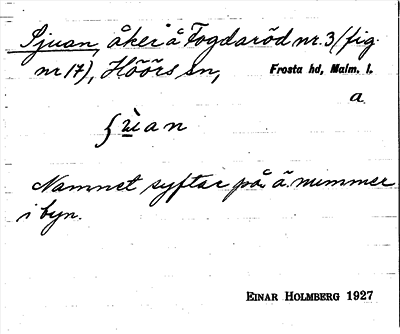 Sjuan, åker å Fogdaröd nr. 3 (fig.
nr 17), Höörs sn, Frosta hd, Malm. l.
a
Namnet syftar på ä. nummer
i byn.
EINAR HOLMBERG 1927